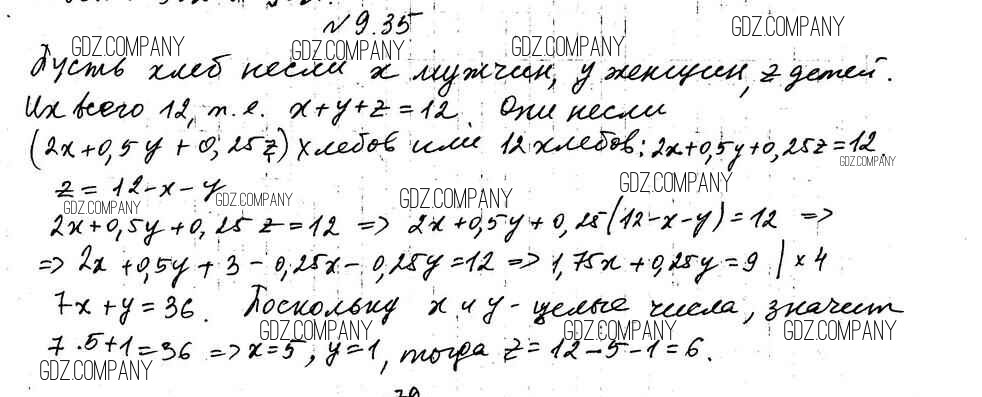 № 9.35
GDZ.COMPANY GDZ.COMPANY GDZ.COMPANY GDZ.COMPANY
Пусть хлеб несли x мужчин, y женщин, z детей.
Их всего 12, т.е. x+y+z=12. Они несли
(2x+0,5y+0,25z) хлебов или 12 хлебов: 2x+0,5y+0,25z=12.
GDZ.COMPANY
z = 12-x-y
GDZ.COMPANY GDZ.COMPANY GDZ.COMPANY GDZ.COMPANY
2x+0,5y+0,25z=12 => 2x+0,5y+0,25(12-x-y)=12 =>
=> 2x+0,5y+3-0,25x-0,25y=12 => 1,75x+0,25y=9 | ×4
7x+y=36. Поскольку x и y - целые числа, значит
GDZ.COMPANY GDZ.COMPANY GDZ.COMPANY
7·5+1=36 => x=5, y=1, тогда z=12-5-1=6.
GDZ.COMPANY